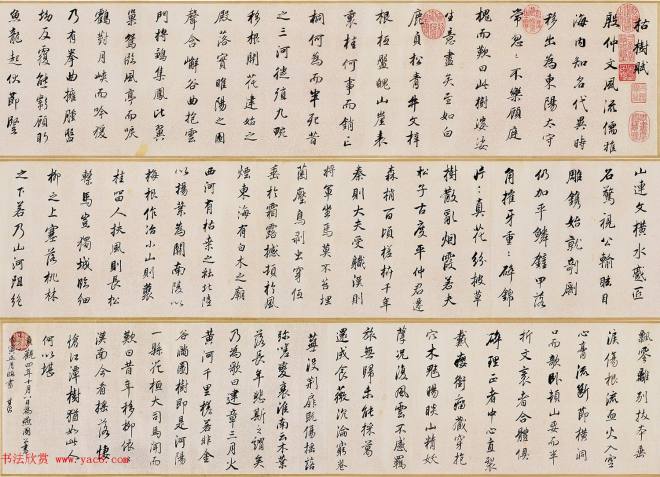 枯樹賦
殷仲文風流儒雅
海内知名代異時
移出為東陽太守
常忽忽不樂顧庭
槐而歎曰此樹婆娑
生意盡矣至如白
鹿貞松青牛文梓
根柢盤魄山崖表
裏桂何事而銷亡
桐何為而半死昔
之三河徙殖九畹
移根開花建始之
殿落實睢陽之園
聲含嶰谷曲抱雲
門將鶵集鳳比翼
巢鴛臨風亭而唳
鶴對月峽而吟猨
乃有拳曲擁腫盤
坳反覆熊彪顧盼
魚龍起伏節豎
山連文橫水蹙匠
石驚視公輸眩目
雕鐫始就剞劂
仍加平鱗鏟甲落
角摧牙重重碎錦
片片真花紛披草
樹散亂烟霞若夫
松子古度平仲君遷
森梢百頃槎枿千年
秦則大夫受職漢則
將軍坐焉莫不苔埋
菌壓鳥剥虫穿或
垂於霜露撼頓於風
煙東海有白木之廟
西河有枯桑之社北陸
以楊葉為關南陵以
梅根作冶小山則叢
桂留人扶風則長松
繫馬豈獨城臨細
柳之上塞落桃林
之下若乃山河阻絶
飄零離別拔本垂
淚傷根流血火入空
心膏流斷節橫洞
口而敧卧頓山腰而半
折文衺者合體俱
碎理正者中心直裂
戴癭銜瘤藏穿抱
穴木魅睗睒山精妖
孽況復風雲不感羇
旅無歸未能採葛
還成食薇沉淪窮巷
蕪沒荊扉既傷搖落
弥嗟變衰淮南云木葉
落長年悲斯之謂矣
乃為歌曰建章三月火
黄河千里槎若非金
谷滿園樹即是河陽
一縣花桓大司馬聞而
歎曰昔年移柳依依
漢南今看搖落悽
愴江潭樹猶如此人
何以堪
貞觀四年十月八日為燕國公書
书法欣赏 www.yac8.com